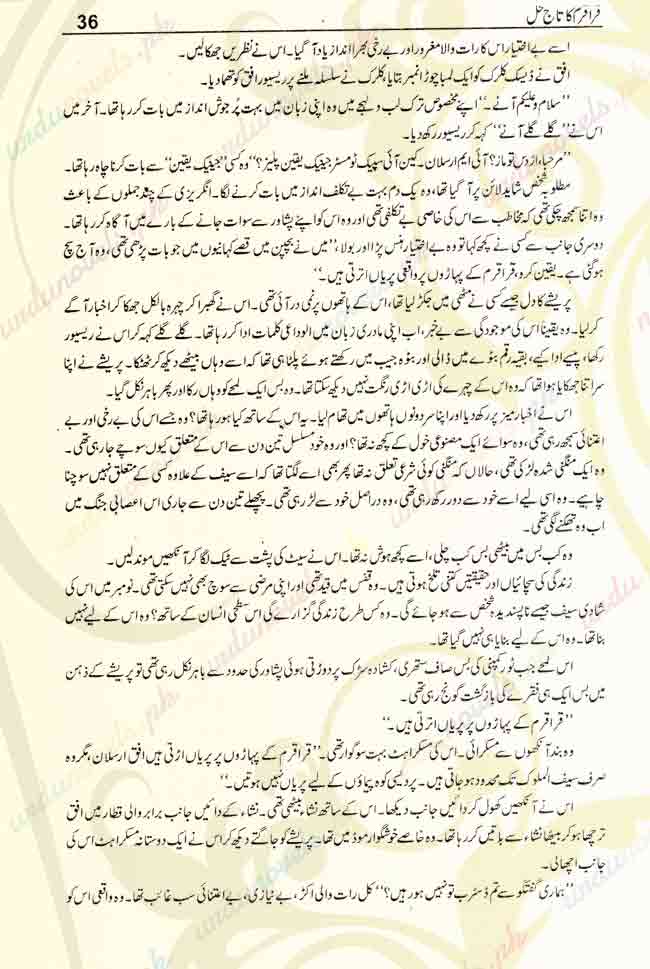 قراقرم کا تاج محل
36
اسے بے اختیار اس کا رات والا مغرور اور بے رخی بھرا انداز یاد آ گیا۔ اس نے نظریں جھکا لیں۔
افق نے ڈیسک کلرک کو ایک لمبا چوڑا نمبر بتایا، کلرک نے سلسلہ ملنے پر ریسیور افق کو تھما دیا۔
”سلام و علیکم آنے۔“ اپنے مخصوص ترک لب و لہجے میں وہ اپنی زبان میں بہت پُر جوش انداز میں بات کر رہا تھا۔ آخر میں
اس نے ”گلے گلے آنے“ کہہ کر ریسیور رکھ دیا۔
”مرحبا، از دس تو ماز؟ آئی ایم ارسلان۔ کین آئی سپیک ٹو مسٹر جینیک یقین پلیز؟“ وہ کسی ”جینیک یقین“ سے بات کرنا چاہ رہا تھا۔
مطلوبہ شخص شاید لائن پر آ گیا تھا، وہ یک دم بہت بے تکلف انداز میں بات کرنے لگا۔ انگریزی کے چند جملوں کے باعث
وہ اتنا سمجھ چکی تھی کہ مخاطب سے اس کی خاصی بے تکلفی تھی اور وہ اس کو اپنے پشاور سے سوات جانے کے بارے میں آگاہ کر رہا تھا۔
دوسری جانب سے کسی نے کچھ کہا تو وہ بے اختیار ہنس پڑا اور بولا، ”میں نے بچپن میں قصے کہانیوں میں جو بات پڑھی تھی، وہ آج سچ
ہو گئی ہے۔ یقین کرو، قراقرم کے پہاڑوں پر واقعی پریاں اترتی ہیں۔“
پریشے کا دل جیسے کسی نے مٹھی میں جکڑ لیا تھا، اس کے ہاتھوں پر نمی در آئی تھی۔ اس نے گھبرا کر چہرہ بالکل جھکا کر اخبار آگے
کر لیا۔ وہ یقیناً اس کی موجودگی سے بے خبر، اب اپنی مادری زبان میں الوداعی کلمات ادا کر رہا تھا۔ گلے گلے کہہ کر اس نے ریسیور
رکھا، پیسے ادا کیے، بقیہ رقم بٹوے میں ڈالی اور بٹوہ جیب میں رکھتے ہوئے پلٹا ہی تھا کہ اسے وہاں بیٹھے دیکھ کر ٹھٹکا۔ پریشے نے اپنا
سر اتنا جھکایا ہوا تھا کہ وہ اس کے چہرے کی اڑی اڑی رنگت نہیں دیکھ سکتا تھا۔ وہ بس ایک لمحے کو وہاں رکا اور پھر باہر نکل گیا۔
اس نے اخبار میز پر رکھ دیا اور اپنا سر دونوں ہاتھوں میں تھام لیا۔ یہ اس کے ساتھ کیا ہو رہا تھا؟ وہ جسے اس کی بے رخی اور بے
اعتنائی سمجھ رہی تھی، وہ سوائے ایک مصنوعی خول کے کچھ نہ تھا؟ اور وہ خود مسلسل تین دن سے اس کے متعلق کیوں سوچے جا رہی تھی۔
وہ ایک منگنی شدہ لڑکی تھی، حالاں کہ منگنی کوئی شرعی تعلق نہ تھا پھر بھی اسے لگتا تھا کہ اسے سیف کے علاوہ کسی کے متعلق نہیں سوچنا
چاہیے۔ وہ اسی لیے اسے خود سے دور رکھ رہی تھی، وہ دراصل خود سے لڑ رہی تھی۔ پچھلے تین دن سے جاری اس اعصابی جنگ میں
اب وہ تھکنے لگی تھی۔
وہ کب بس میں بیٹھی بس کب چلی، اسے کچھ ہوش نہ تھا۔ اس نے سیٹ کی پشت سے ٹیک لگا کر آنکھیں موند لیں۔
زندگی کی سچائیاں اور حقیقتیں کتنی تلخ ہوتی ہیں۔ وہ قفس میں قید تھی اور اپنی مرضی سے سوچ بھی نہیں سکتی تھی۔ نومبر میں اس کی
شادی سیف جیسے ناپسندیدہ شخص سے ہو جائے گی۔ وہ کس طرح زندگی گزارے گی اس سطحی انسان کے ساتھ؟ وہ اس کے لیے نہیں
بنا تھا۔ وہ اس کے لیے بنایا ہی نہیں گیا تھا۔
اس لمحے جب ٹور کمپنی کی بس صاف ستھری، کشادہ سڑک پر دوڑتی ہوئی پشاور کی حدود سے باہر نکل رہی تھی تو پریشے کے ذہن
میں بس ایک ہی فقرے کی بازگشت گونج رہی تھی۔
”قراقرم کے پہاڑوں پر پریاں اترتی ہیں۔“
وہ بند آنکھوں سے مسکرائی۔ اس کی مسکراہٹ بہت سوگوار تھی۔ ”قراقرم کے پہاڑوں پر پریاں اڑتی ہیں افق ارسلان، مگر وہ
صرف سیف الملوک تک محدود ہو جاتی ہیں۔ پردیسی کوہ پیماؤں کے لیے پریاں نہیں ہوتیں۔“
اس نے آنکھیں کھول کر دائیں جانب دیکھا۔ اس کے ساتھ نشاء بیٹھی تھی۔ نشاء کے دائیں جانب برابر والی قطار میں افق
ترچھا ہو کر بیٹھا نشاء سے باتیں کر رہا تھا۔ وہ خاصے خوشگوار موڈ میں تھا۔ پریشے کو جاگتے دیکھ کر اس نے ایک دوستانہ مسکراہٹ اس کی
جانب اچھالی۔
”ہماری گفتگو سے تم ڈسٹرب تو نہیں ہو رہیں؟“ کل رات والی اکڑ، بے نیازی، بے اعتنائی سب غائب تھا۔ وہ واقعی اس کو